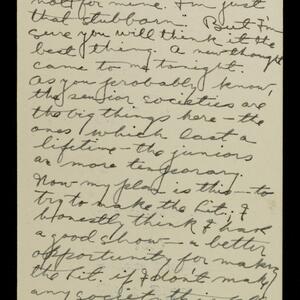 not for mine. I'm just
that stubborn. But I'm
sure you will think it the
best thing. A new thought
came to me tonight.
As you probably know,
the senior societies are
the big things here — the
ones which last a
lifetime — the juniors
are more temporary.
Now my plan is this — to
try to make the Lit. I
honestly think I have
a good show — a better
opportunity for making
the Lit. if I don't make
any society this